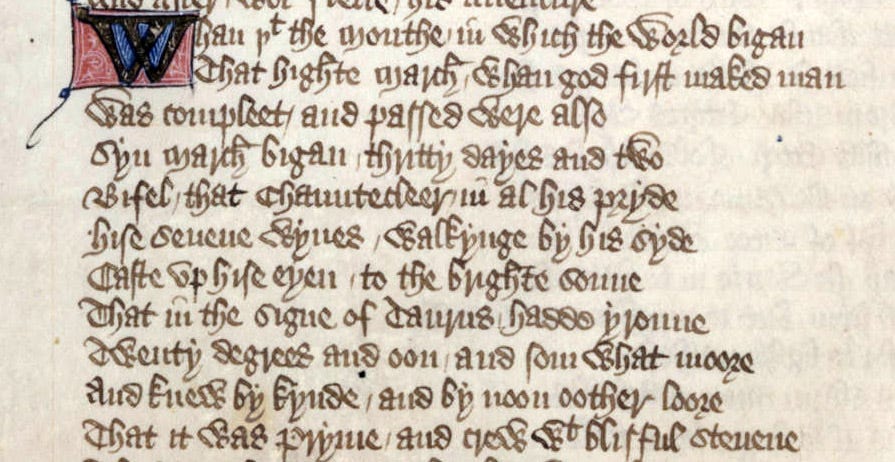 Whan yͭ the Monthe / in which the world bigan
That highte March / whan god first maked man
Was compleet / and passed were also
Syn March bigan / thritty dayes and two
Bifel / that Chauntecleer / in al his pryde
Hise seuene wyues / walkynge by his syde
Caste vp hise eyen / to the brighte sonne
That in the signe of Taurus / hadde yronne
Twenty degrees and oon / and som what moore
And knew by kynde / and by noon oother loore
That it was pryme / and crew wͭ blisful steuene